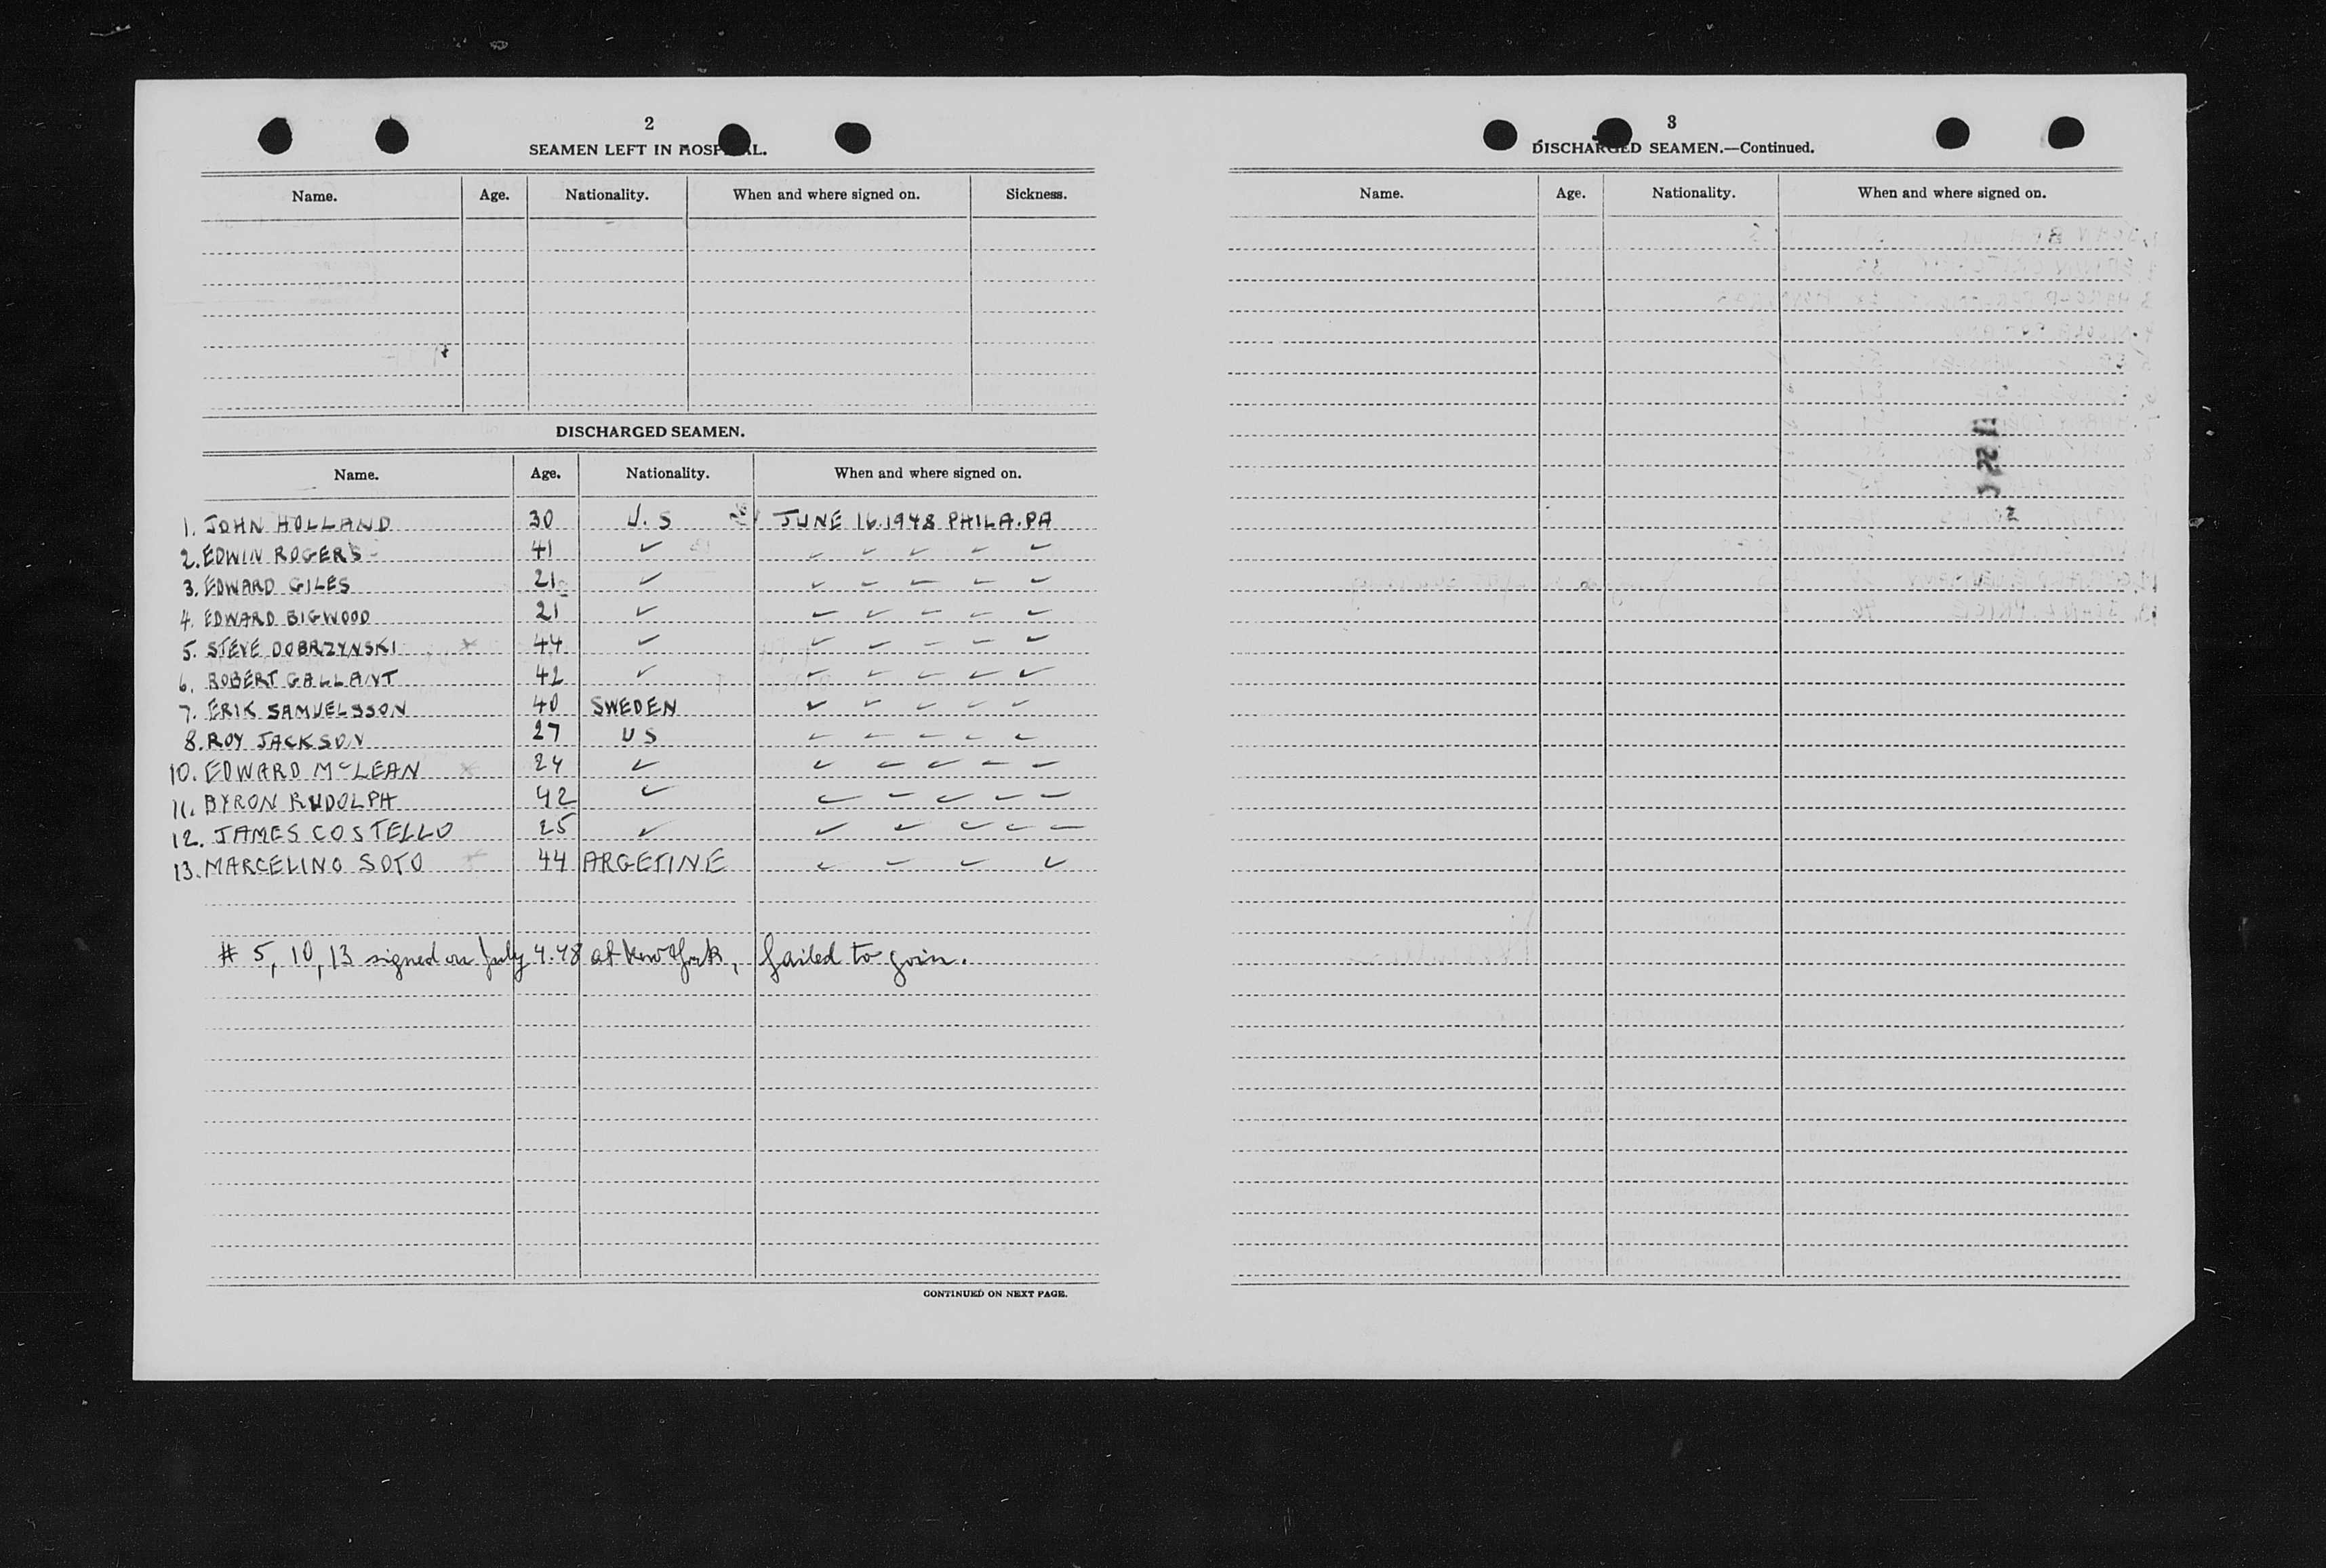 2
SEAMEN LEFT IN HOSPITAL.
Name. Age. Nationality. When and where signed on. Sickness.
DISCHARGED SEAMEN.
Name. Age. Nationality. When and where signed on.
1. JOHN HOLLAND 30 U. S JUNE 16.1948 PHILA.PA
2. EDWIN ROGERS 41 ✓ ✓ ✓ ✓ ✓ ✓
3. EDWARD GILES 21 ✓ ✓ ✓ ✓ ✓ ✓
4. EDWARD BIGWOOD 21 ✓ ✓ ✓ ✓ ✓ ✓
5. STEVE DOBRZYNSKI x 44 ✓ ✓ ✓ ✓ ✓ ✓
6. ROBERT GALLANT 42 ✓ ✓ ✓ ✓ ✓ ✓
7. ERIK SAMUELSSON 40 SWEDEN ✓ ✓ ✓ ✓ ✓
8. ROY JACKSON 27 US ✓ ✓ ✓ ✓ ✓
10. EDWARD McLEAN x 24 ✓ ✓ ✓ ✓ ✓ ✓
11. BYRON RUDOLPH 42 ✓ ✓ ✓ ✓ ✓ ✓
12. JAMES COSTELLO 25 ✓ ✓ ✓ ✓ ✓ ✓
13. MARCELINO SOTO x 44 ARGETINE ✓ ✓ ✓ ✓
# 5, 10, 13 signed on July 4.48 at New York, failed to join.
CONTINUED ON NEXT PAGE.
3
DISCHARGED SEAMEN.—Continued.
Name. Age. Nationality. When and where signed on.